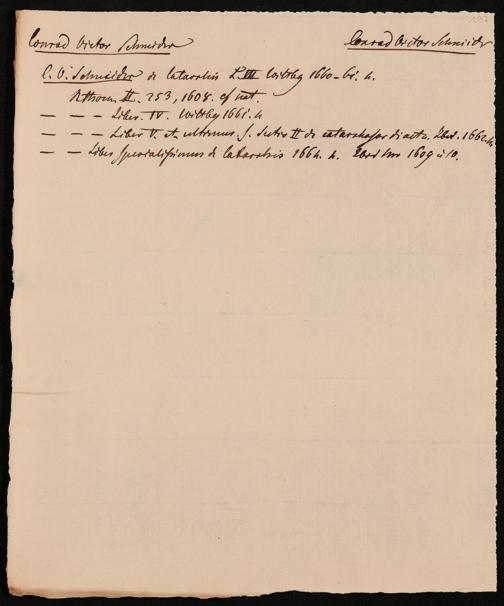 Conrad Victor Schneider Conrad Victor Schneider
C. V. Schneider de Catarrhis L. III Wittbg 1660-61. 4.
II. 253, 1608. cf nat.
— — — Liber IV. Wittbg 1661. 4
— — — Liber V. et ultimus. s. Sectio II de 1662. 4
— — Liber specialissimus de Catarrhis 1664. 4. 1609 u 10.